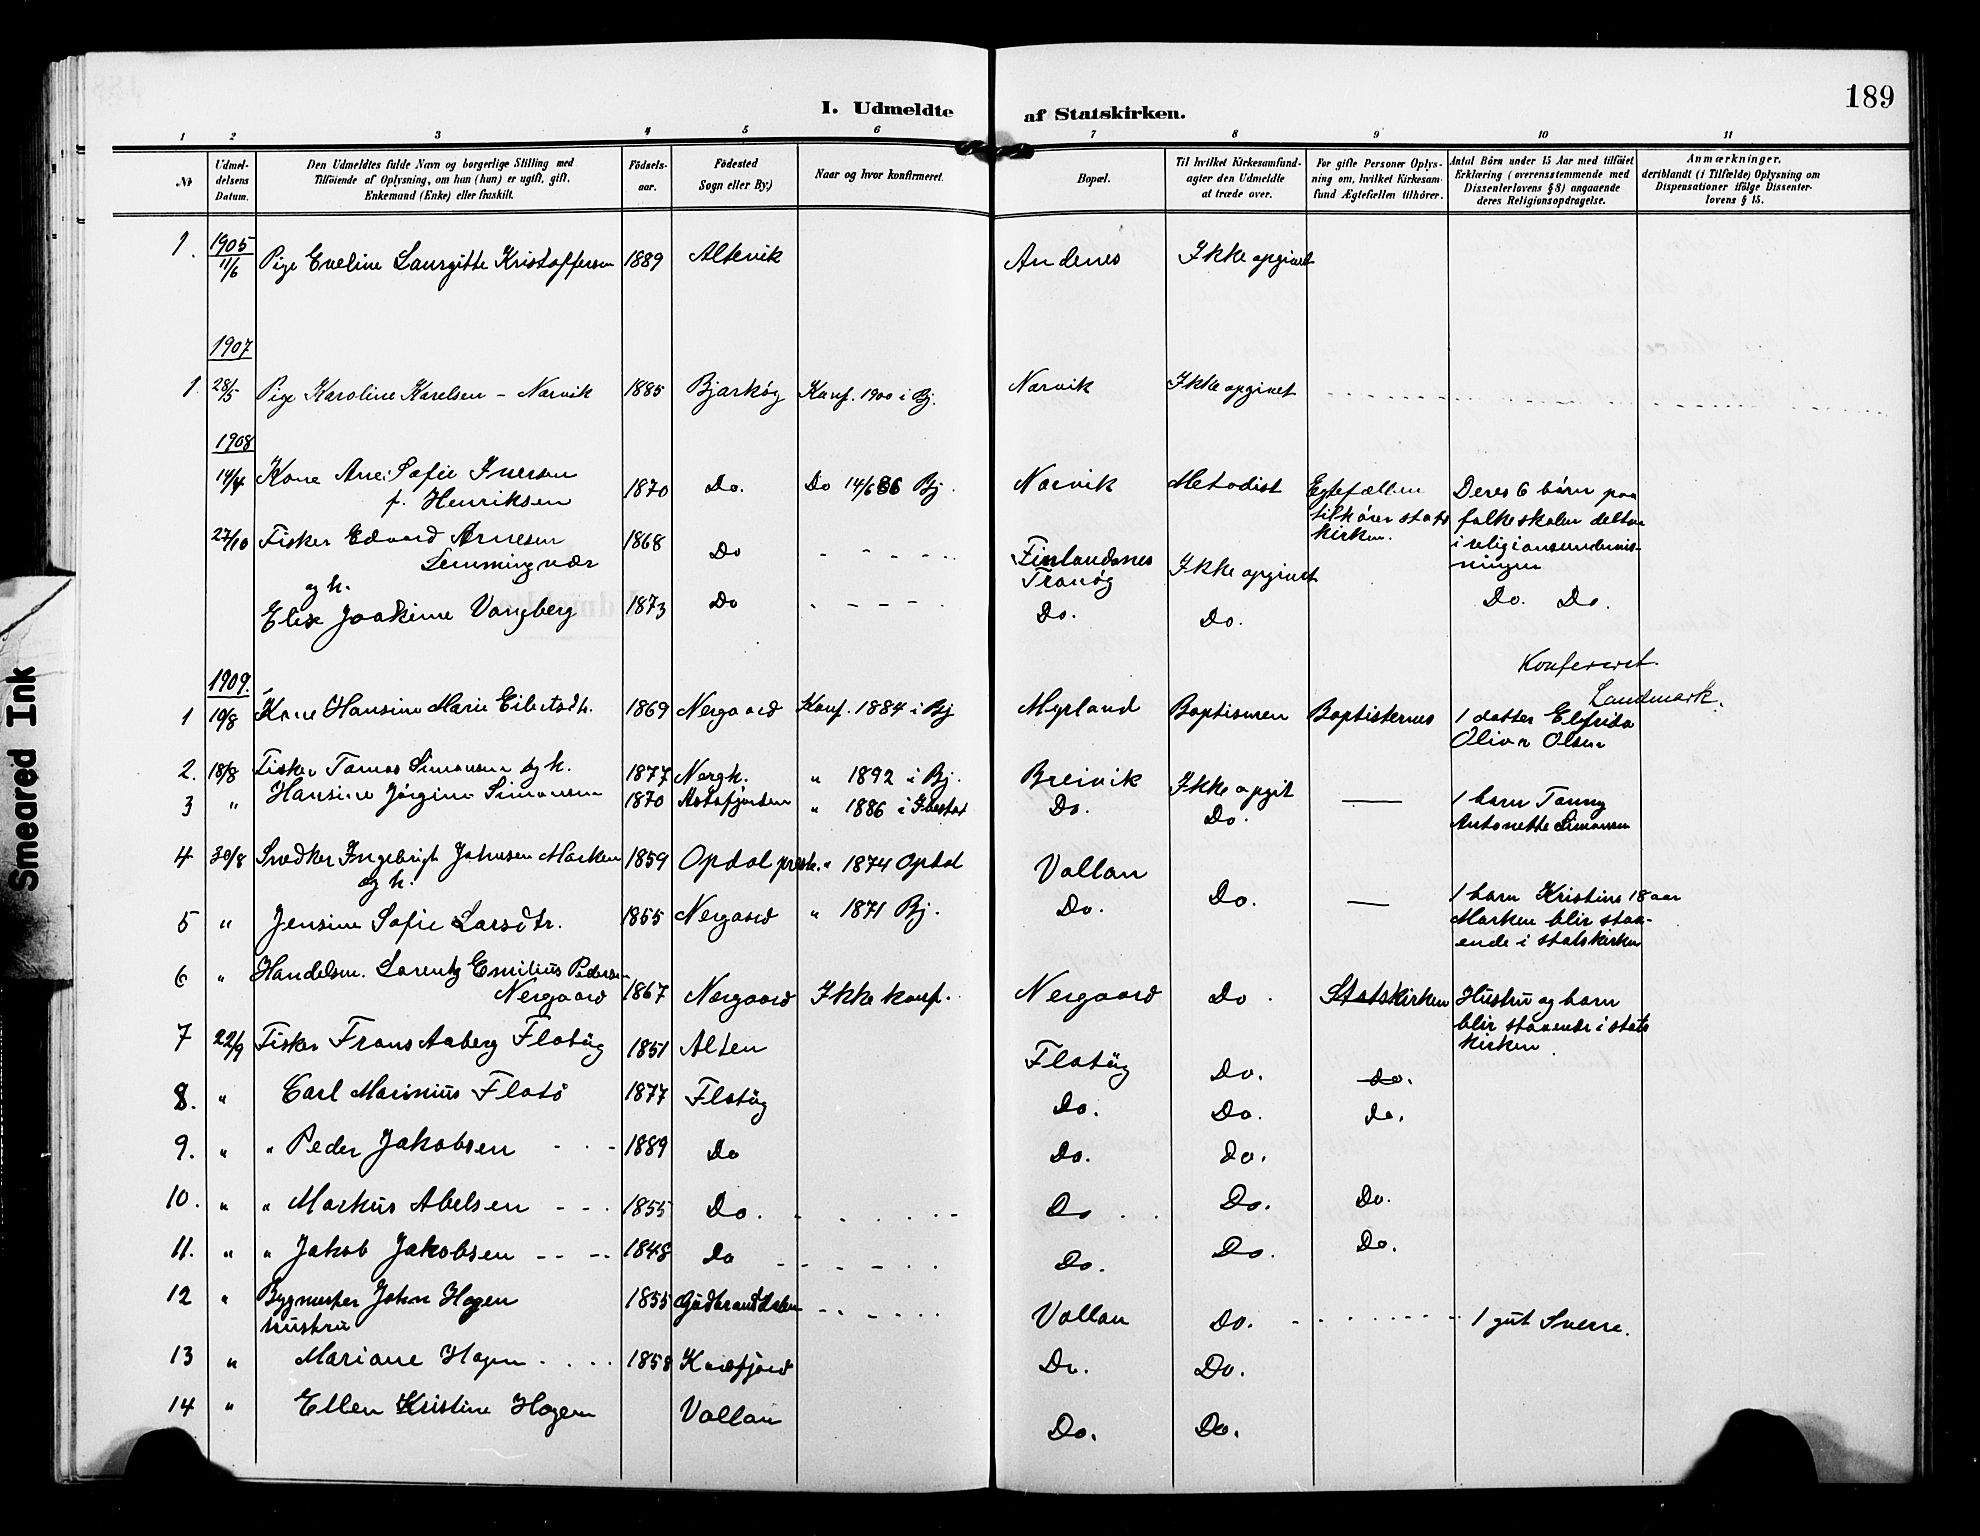 189
I. Udmeldte af Statskirken.
1 2 3 4 5 6 7 8 9 10 11
Nr.
Udmeldelsens Datum.
Den Udmeldtes fulde Navn og borgerlige Stilling med Tilføiende af Oplysning, om han (hun) er ugift, gift, Enkemand (Enke) eller fraskilt.
Födselsaar.
Födested Sogn eller By.)
Naar og hvor konfirmeret.
Bopæl.
Til hvilket Kirkesamfund agter den Udmeldte at træde over.
For gifte Personer Oplysning om, hvilket Kirkesamfund Ægtefællen tilhörer.
Antal Börn under 15 Aar med tilföiet Erklæring (overensstemmende med Dissenterlovens § 8) angaaende deres Religionsopdragelse.
Anmærkninger. deriblandt (i Tilfælde) Oplysning om Dispensationer ifölge Dissenterlovens § 15.
1. 1905 11/6 Pige Eveline Laurgitte Kristoffersen 1889 Altevik Andenes Ikke opgivet
1907
1. 28/5 Pige Karoline Karelsen - Narvik 1885 Bjarköy Konf. 1900 i Bj. Narvik Ikke opgivet
1908
14/4 Kone Ane Sofie Iversen f. Henriksen 1870 Do. Do 14/6 86 Bj. Narvik Metodist Egtefællen tilhörer statskirken. Deres 6 börn paa folkeskolen deltar i religionsundervisningen
27/10 Fisker Edvard Arnesen Lemmingvær 1868 Do Finlandsnes Tranöy Ikke opgivet
og h.
Elise Joakime Vangberg 1873 Do Do. Do. Do. Do.
Konfereret.
Landmark.
1909.
1 10/8 Kone Hansine Marie Eilertsdtr. 1869 Nergaard Konf. 1884 i Bj Myrland Baptismen Baptisternes 1 datter Elfrida Oliva Olsen
2. 18/8 Fisker Tomas Simonsen og h. 1877 Nergh. " 1892 i Bj. Breivik Ikke opgit
3 " Hansine Jörgine Simonsen 1870 Astafjorden " 1886 i Ibestad Do. Do. — 1 barn Tanny Antonette Simonsen
4 30/8 Snedker Ingebrigt Johnsen Marken og h. 1859 Opdal prestg. " 1874 Opdal Vollan
5 " Jensine Sofie Larsdtr. 1855 Nergaard " 1871 Bj. Do. Do. — 1 barn Kristine 18 aar Marken blir staaende i statskirken
6 " Handelsm. Lorentz Emilius Pedersen Nergaard 1867 Nergaard Ikke konf. Nergaard Do. Statskirken Hustru og barn blir staaende i statskirken.
7 22/9 Fisker Frans Aaberg Flatöy 1851 Alten Flatöy Do. do.
8. " Carl Marinius Flatö 1877 Flatöy Do. Do. do.
9. " " Peder Jakobsen 1889 Do Do. do.
10. " " Markus Abelsen 1855 Do. Do Do. Do.
11. " " Jakob Jakobsen 1848 Do Do. Do. Do.
12 " Bygmester John Hagen 1855 Gudbrandsdalen Vollan Do. 1 gut Sverre.
hustru
13 " Mariane Hagen 1858 Kvæfjord Do. Do.
14 " Ellen Kristine Hagen Vollan Do. Do.
Smeared Ink